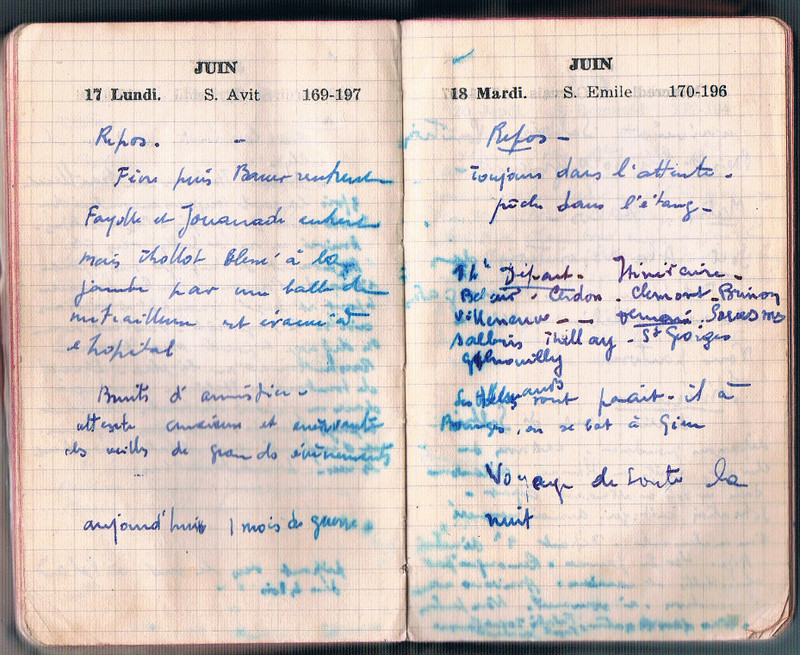 JUIN
17 Lundi. S. Avit 169-197
Repos. -
Fèvre puis Bauer rentrent
Fayolle et Jouanade entrent
mais Thollot blessé à la
jambe par une balle de
mitrailleuse est évacué à
l'hopital
Bruits d'armistice -
attente anxieuse et énervante
des veilles de grands évènements
aujourd'hui 1 mois de guerre.
JUIN
18 Mardi. S. Emile 170-196
Repos -
Toujours dans l'attente -
pêche dans l'étang -
Départ - Itinéraire -
Cerdon - Clemont - Brinon
Villeneuve - -
Salbris Theillay - St Georges
Genouilly
Les Allemands sont parait-il à
Bourges, on se bat à Gien
Voyage de toute la
nuit